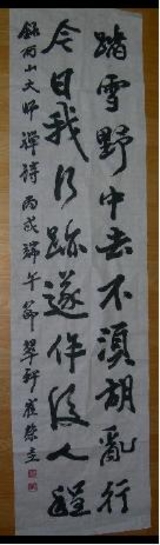 踏雪野中去不湏胡亂行
今日我行跡遂作後人程
錄西山大師禪詩丙戌端午節翠軒崔